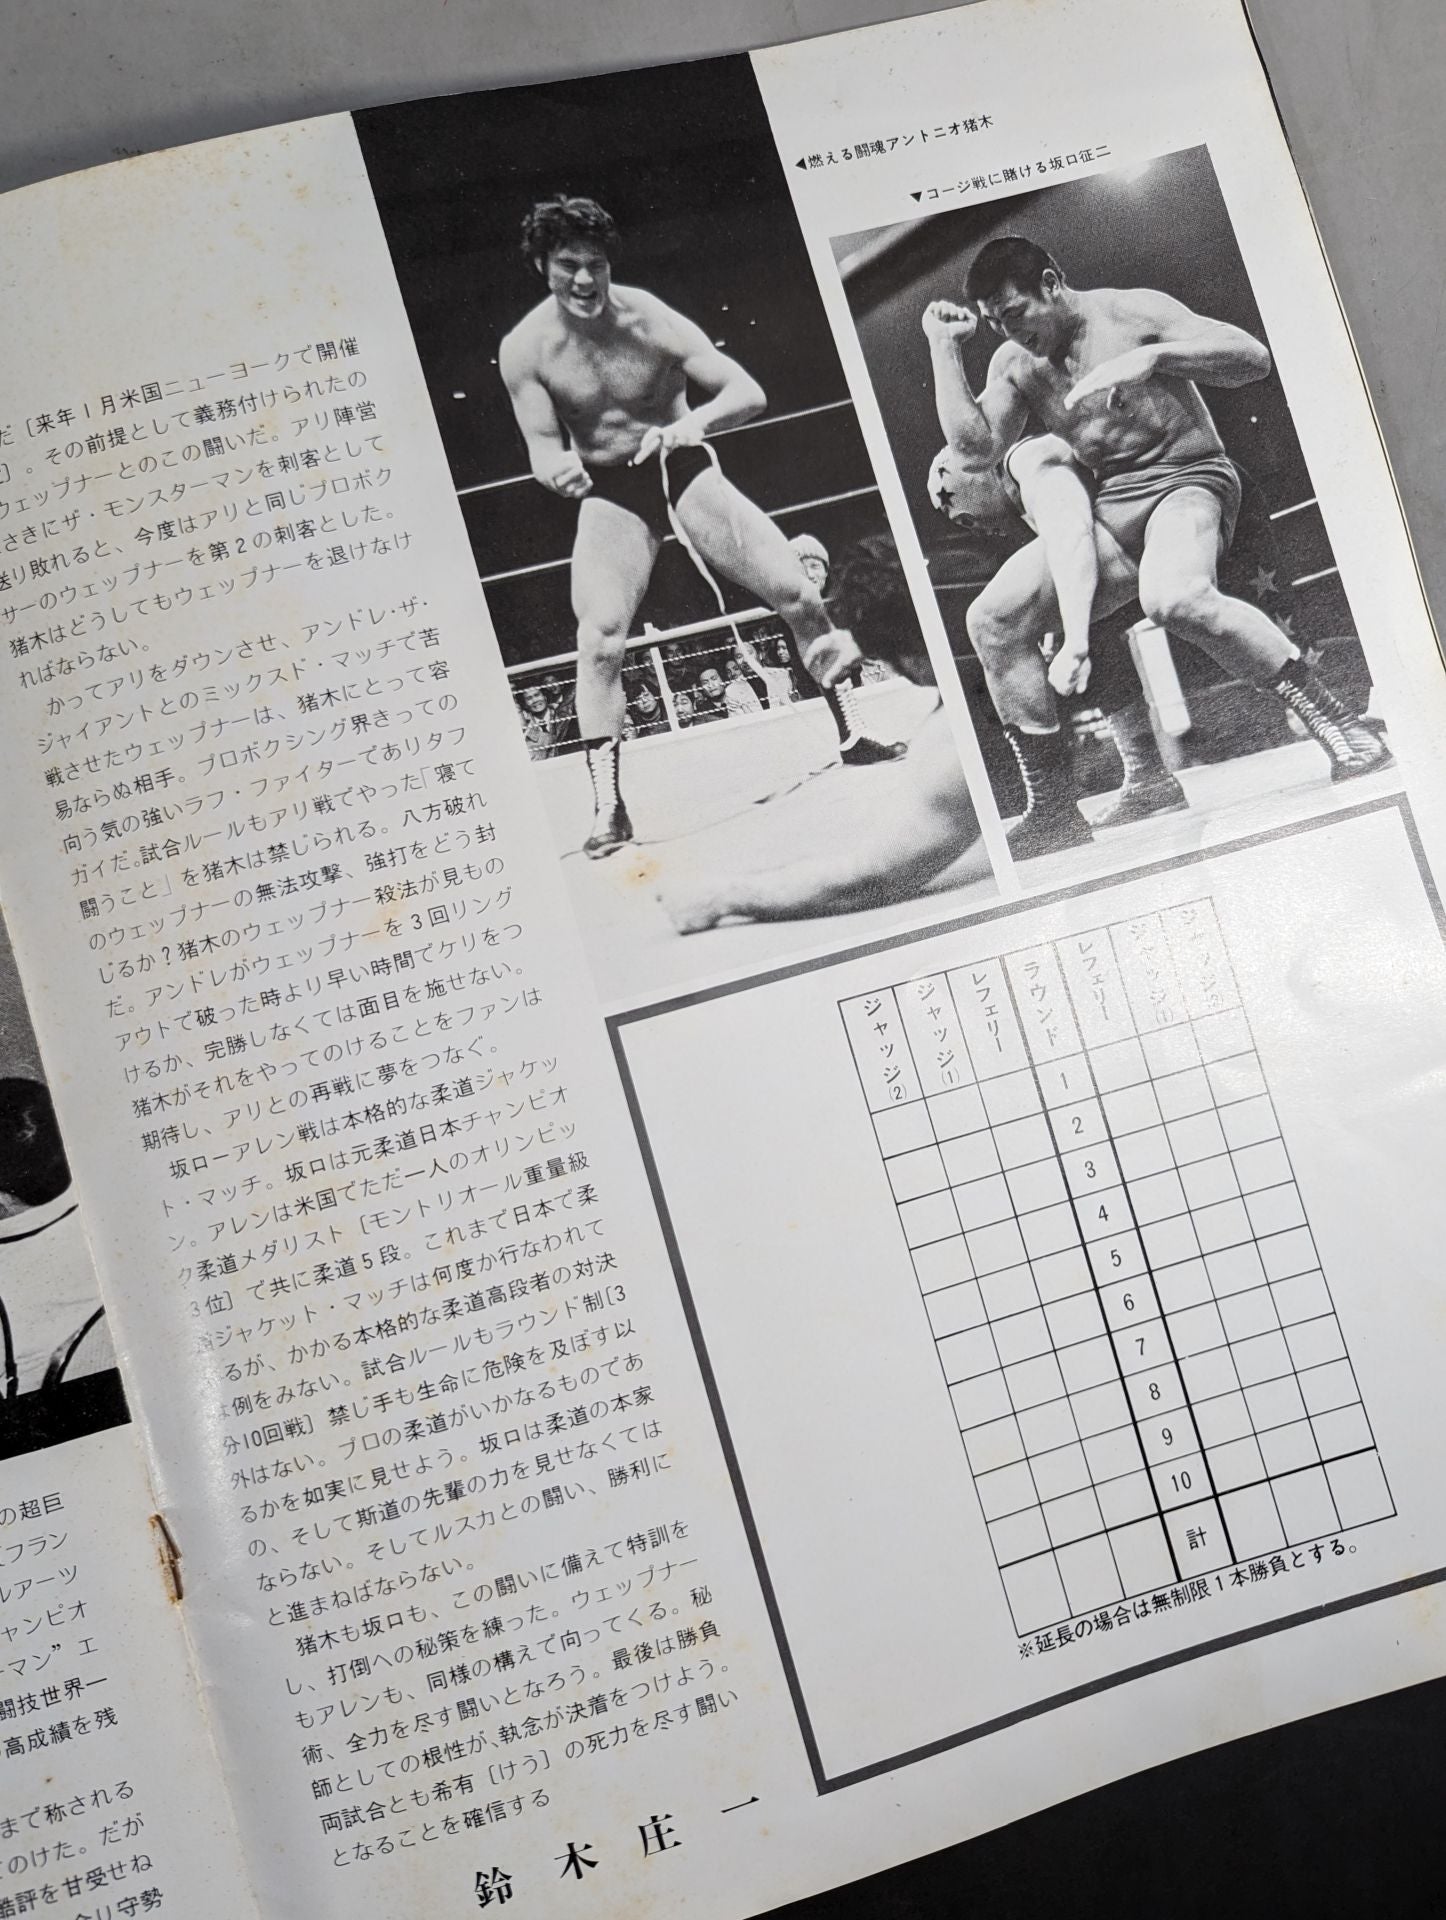 の超巨
フラン
ルアーツ
ャンピオ
ーマン”エ
闘技世界一
高成績を残
まで称される
のけた。だが
酷評を甘受せね
だ［来年1月米国ニューヨークで開催
］。その前提として義務付けられたの
ウェップナーとのこの闘いだ。アリ陣営
さきにザ・モンスターマンを刺客として
送り敗れると、今度はアリと同じプロボク
サーのウェップナーを第2の刺客とした。
猪木はどうしてもウェップナーを退けなけ
ればならない。
かってアリをダウンさせ、アンドレ・ザ・
ジャイアントとのミックスド・マッチで苦
戦させたウェップナーは、猪木にとって容
易ならぬ相手。プロボクシング界きっての
向う気の強いラフ・ファイターでありタフ
ガイだ。試合ルールもアリ戦でやった「寝て
闘うこと」を猪木は禁じられる。八方破れ
のウェップナーの無法攻撃、強打をどう封
じるか？猪木のウェップナー殺法が見もの
だ。アンドレがウェップナーを3回リング
アウトで破った時より早い時間でケリをつ
けるか、完勝しなくては面目を施せない。
猪木がそれをやってのけることをファンは
期待し、アリとの再戦に夢をつなぐ。
坂口ーアレン戦は本格的な柔道ジャケッ
ト・マッチ。坂口は元柔道日本チャンピオ
ン。アレンは米国でただ一人のオリンピッ
ク柔道メダリスト［モントリオール重量級
3位］で共に柔道5段。これまで日本で柔
ジャケット・マッチは何度か行なわれて
るが、かかる本格的な柔道高段者の対決
例をみない。試合ルールもラウンド制［3
分10回戦］禁じ手も生命に危険を及ぼす以
外はない。プロの柔道がいかなるものであ
るかを如実に見せよう。坂口は柔道の本家
の、そして斯道の先輩の力を見せなくては
ならない。そしてルスカとの闘い、勝利に
と進まねばならない。
猪木も坂口も、この闘いに備えて特訓を
し、打倒への秘策を練った。ウェップナー
もアレンも、同様の構えで向ってくる。秘
術、全力を尽す闘いとなろう。最後は勝負
師としての根性が、執念が決着をつけよう。
両試合とも希有［けう］の死力を尽す闘い
となることを確信する
鈴木庄一
◀燃える闘魂アントニオ猪木
▼コージ戦に賭ける坂口征二
ジャッジ(2)
ジャッジ(1)
レフェリー
ラウンド
レフェリー
ジャッジ(1)
ジャッジ(2)
1
2
3
4
5
6
7
8
9
10
計
※延長の場合は無制限1本勝負とする。